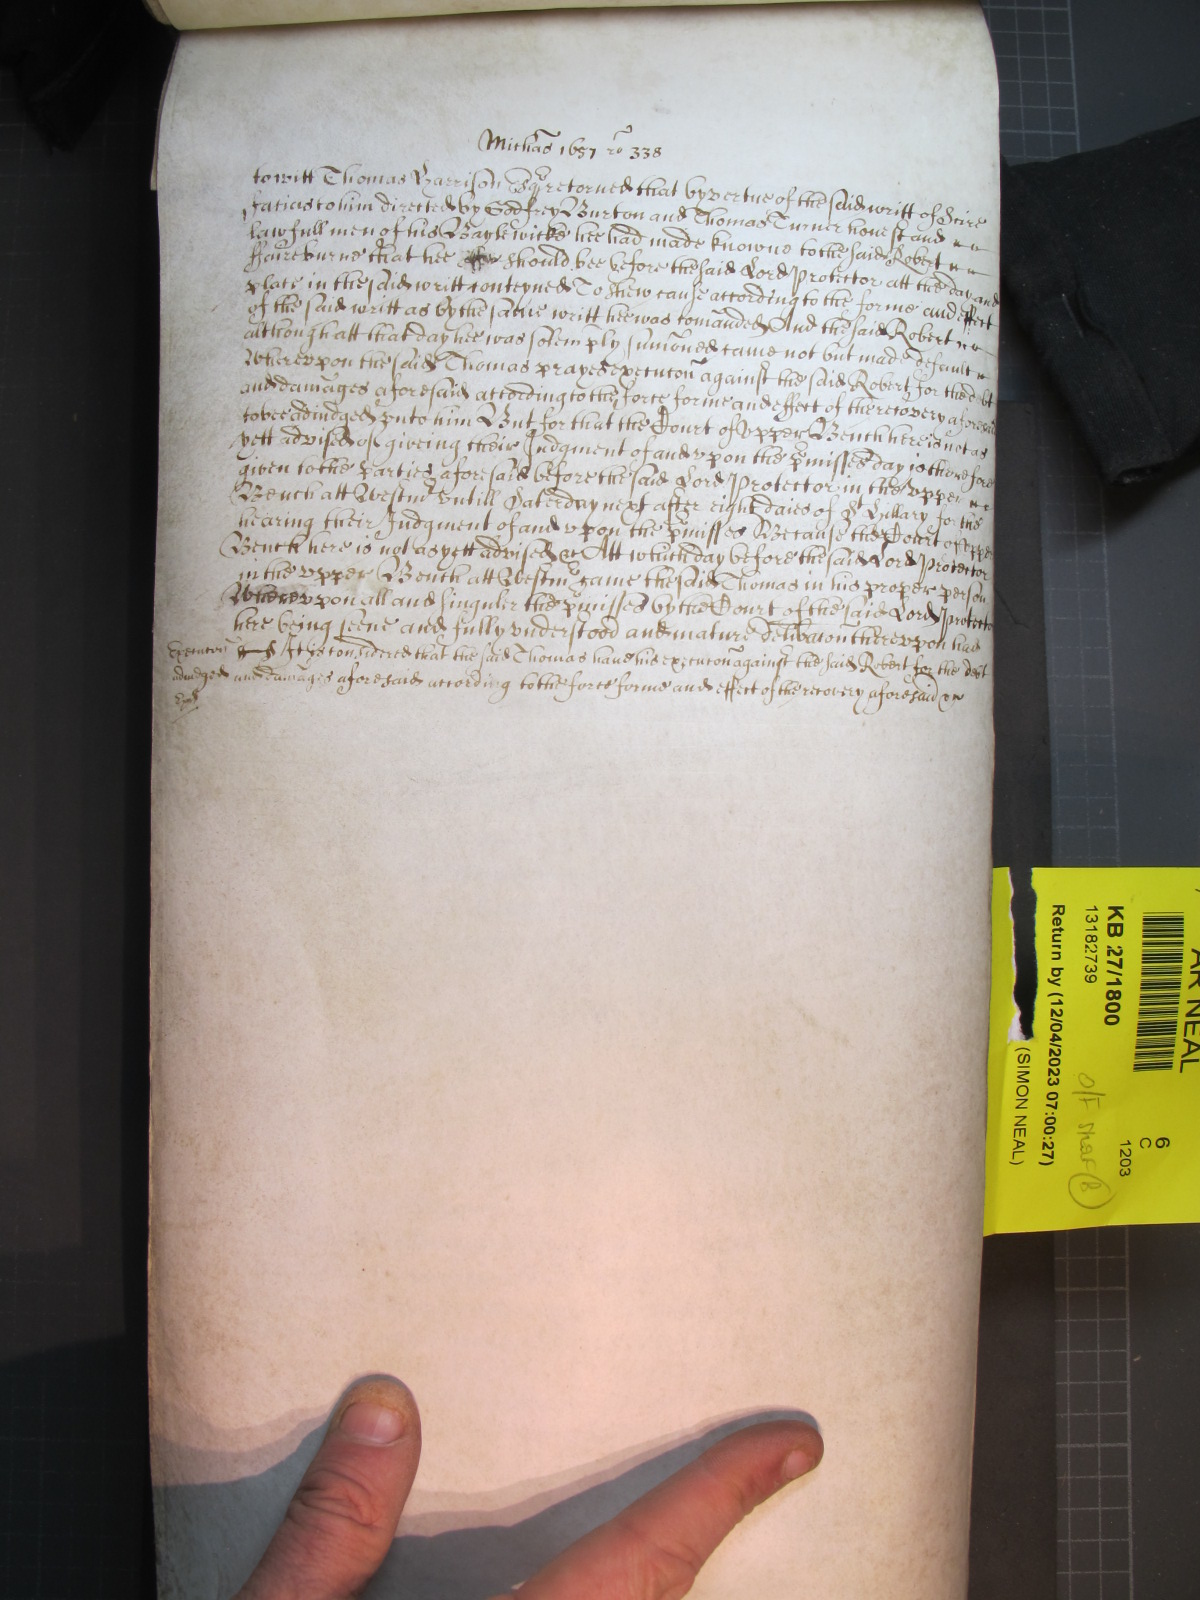 Michas 1657 ro 338
to witt Thomas Harrison Esqr retorned that by vertue of the said writt of Scire
facias to him directed by Godfrey Burton and Thomas Turner honest and
lawfull men of his Baylewicke hee had made knowne to the said Robert
ffaireburne that hee should bee before the said Lord Protector att the day and
place in the said writt conteyned To shew cause according to the forme and effect
of the said writt as by the same writt hee was comanded And the said Robert
although att that day hee was solemply sumoned came not but made default
Whereupon the said Thomas prayes execucon against the said Robert for the debt
and damages aforesaid according to the force forme and effect of the recovery aforesaid
to bee adiudged unto him But for that the Court of Upper Bench here is not as
yett advised of giveing their Judgment of and upon the pmisses day is therefore
given to the parties aforesaid before the said Lord Protector in the Upper
Bench att Westmr untill Saterday next after eight daies of St Hillary for the
hearing their Judgment of and upon the pmisses Because the Court of Upper
Bench here is not as yett advised &c Att which day before the said Lord Protector
in the Upper Bench att Westmr came the said Thomas in his proper person
Whereupon all and singuler the pmisses by the Court of the said Lord Protector
here being seene and fully understood and mature delibacon thereupon had
Execucon It is considered that the said Thomas have his execucon against the said Robert for the debt
adiudged and damages aforesaid according to the force forme and effect of the recovery aforesaid
AR NEAL
KB 27/1800
13182739
Return by (12/04/2023 07:00:27)
(SIMON NEAL)
6
C
1203
O/F